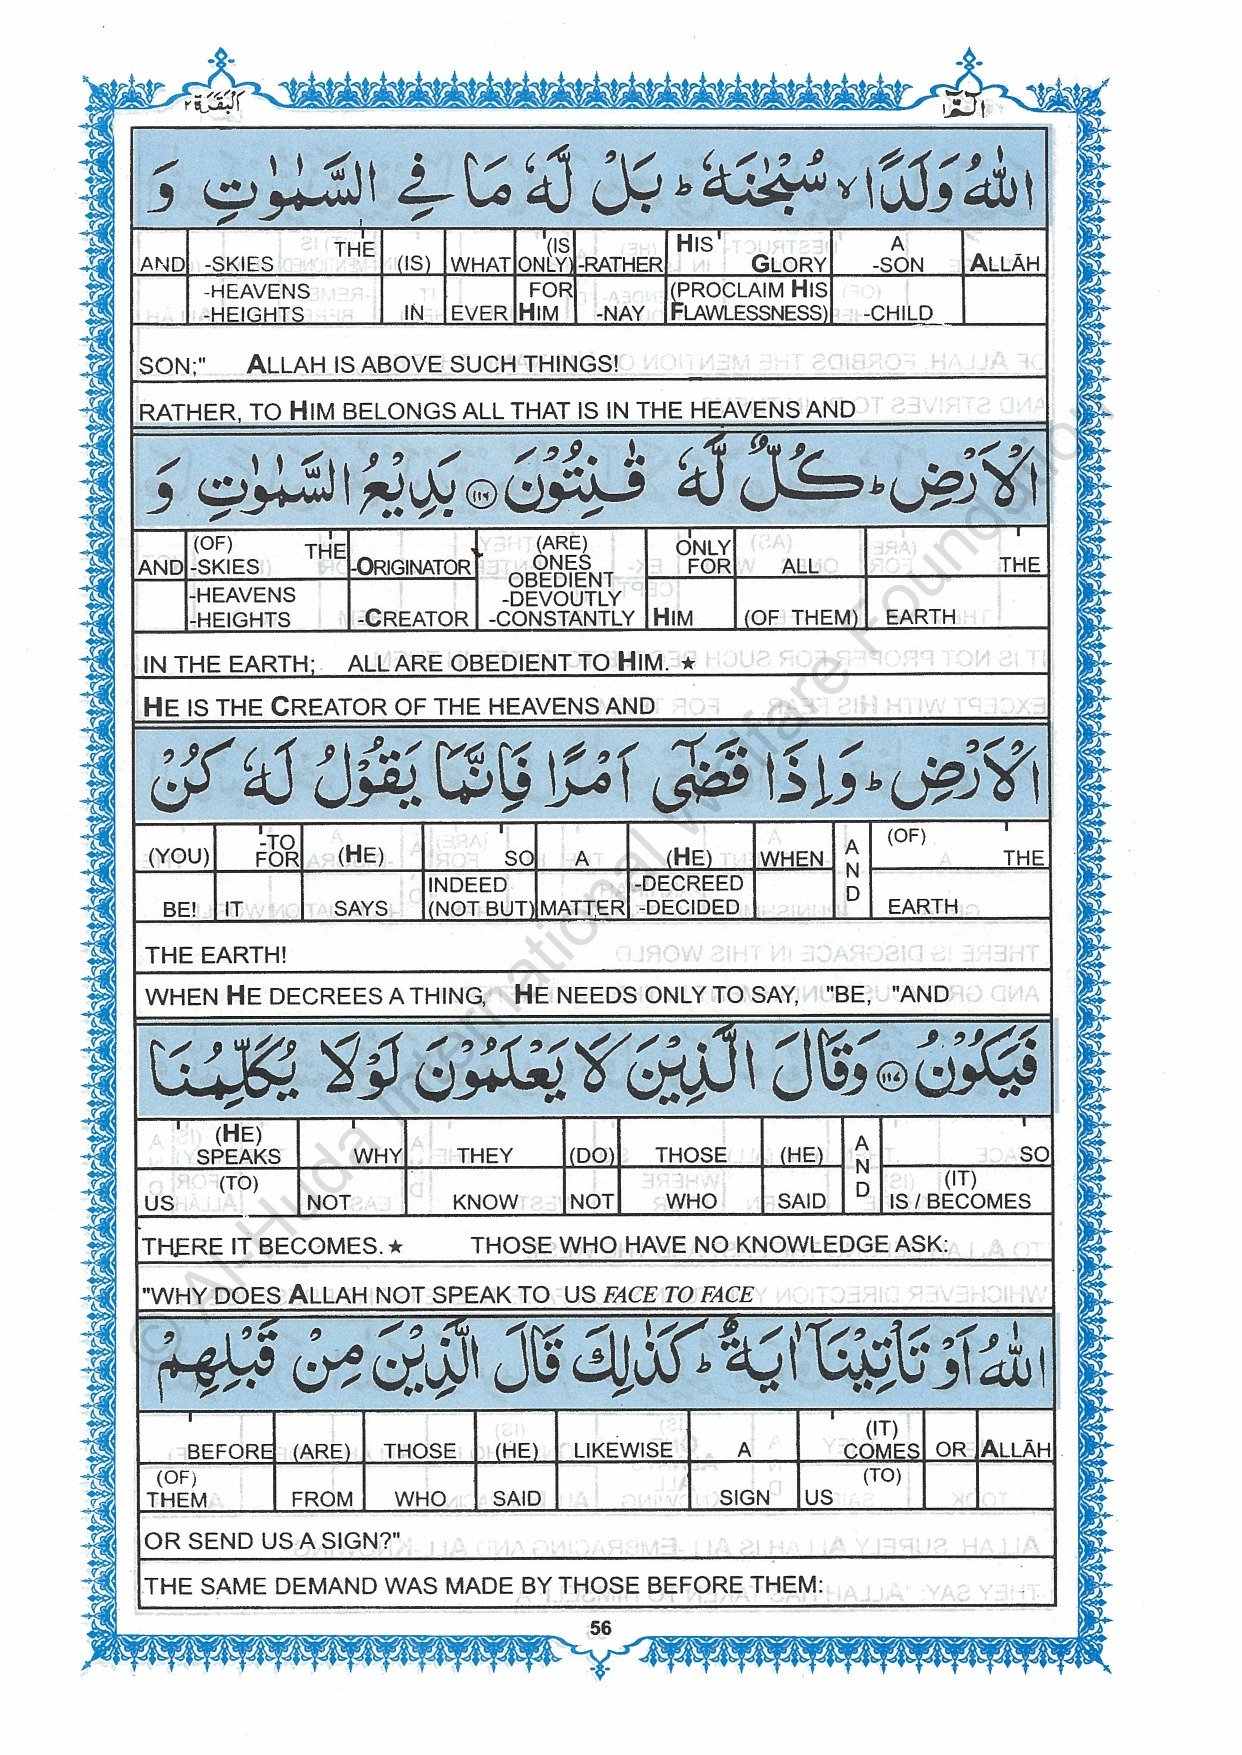 الٓمّٓ ١
اَلْبَقَرَة ٢
اللّٰهُ وَلَدًا ۙ سُبْحٰنَهٗ ؕ بَلْ لَّهٗ مَا فِي السَّمٰوٰتِ وَ
AND -SKIES THE (IS) WHAT (IS ONLY) -RATHER HIS GLORY A -SON ALLĀH
-HEAVENS -HEIGHTS IN EVER FOR HIM -NAY (PROCLAIM HIS FLAWLESSNESS) -CHILD
SON;" ALLAH IS ABOVE SUCH THINGS!
RATHER, TO HIM BELONGS ALL THAT IS IN THE HEAVENS AND
الْاَرْضِ ؕ كُلٌّ لَّهٗ قٰنِتُوْنَ ۝١١٦ بَدِيْعُ السَّمٰوٰتِ وَ
AND (OF) -SKIES THE -ORIGINATOR (ARE) ONES OBEDIENT ONLY FOR ALL THE
-HEAVENS -HEIGHTS -CREATOR -DEVOUTLY -CONSTANTLY HIM (OF THEM) EARTH
IN THE EARTH; ALL ARE OBEDIENT TO HIM. ★
HE IS THE CREATOR OF THE HEAVENS AND
الْاَرْضِ ؕ وَاِذَا قَضٰٓى اَمْرًا فَاِنَّمَا يَقُوْلُ لَهٗ كُنْ
(YOU) -TO FOR (HE) SO A (HE) WHEN AND (OF) THE
BE! IT SAYS INDEED (NOT BUT) MATTER -DECREED -DECIDED EARTH
THE EARTH!
WHEN HE DECREES A THING, HE NEEDS ONLY TO SAY, "BE, "AND
فَيَكُوْنُ ۝١١٧ وَقَالَ الَّذِيْنَ لَا يَعْلَمُوْنَ لَوْلَا يُكَلِّمُنَا
(HE) SPEAKS WHY THEY (DO) THOSE (HE) AND SO
US (TO) NOT KNOW NOT WHO SAID (IT) IS / BECOMES
THERE IT BECOMES. ★ THOSE WHO HAVE NO KNOWLEDGE ASK:
"WHY DOES ALLAH NOT SPEAK TO US FACE TO FACE
اللّٰهُ اَوْ تَاْتِيْنَآ اٰيَةٌ ؕ كَذٰلِكَ قَالَ الَّذِيْنَ مِنْ قَبْلِهِمْ
BEFORE (ARE) THOSE (HE) LIKEWISE A (IT) COMES OR ALLĀH
(OF) THEM FROM WHO SAID SIGN US (TO)
OR SEND US A SIGN?"
THE SAME DEMAND WAS MADE BY THOSE BEFORE THEM:
56
© Al-Huda International Welfare Foundation